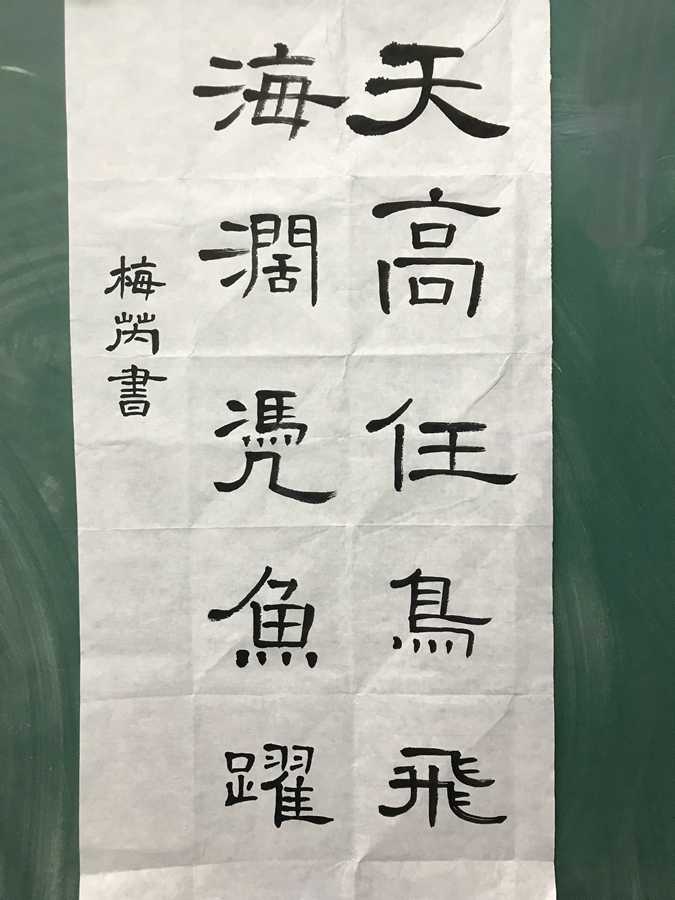 天高任鳥飛
海濶凴魚躍
梅芮書